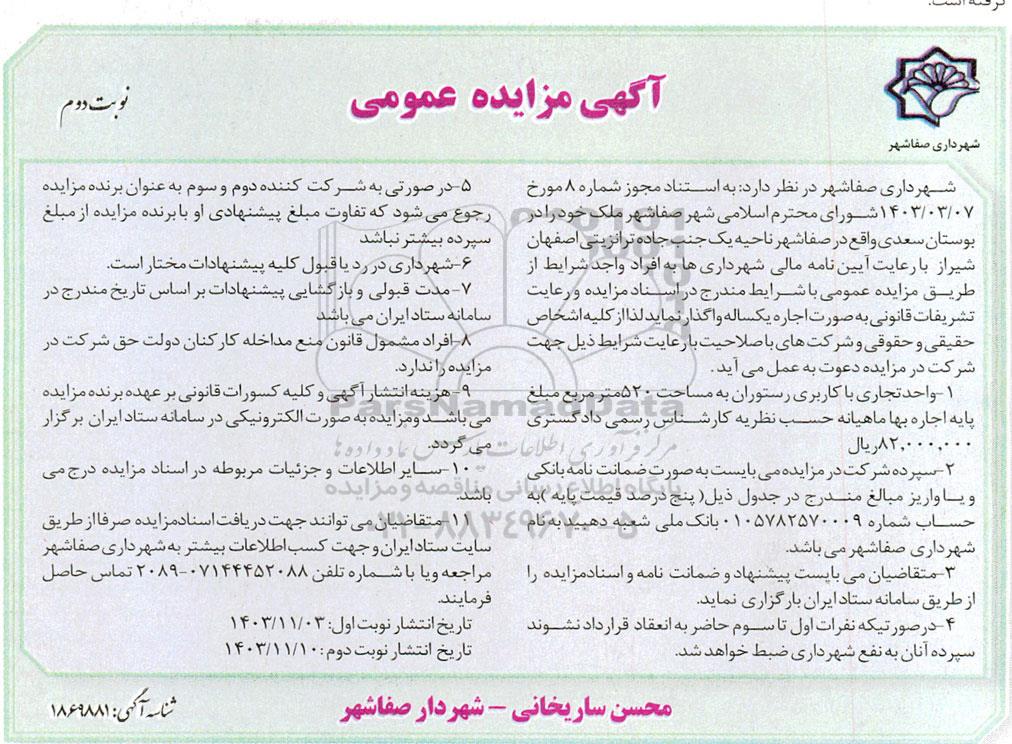 گرفته است.
شهرداری صفاشهر
آگهی مزایده عمومی
نوبت دوم
شهرداری صفاشهر در نظر دارد: به استناد مجوز شماره ۸ مورخ
۱۴۰۳/۰۳/۰۷ شورای محترم اسلامی شهر صفاشهر ملک خود را در
بوستان سعدی واقع در صفاشهر ناحیه یک جنب جاده ترانزیتی اصفهان
شیراز با رعایت آیین نامه مالی شهرداری ها به افراد واجد شرایط از
طریق مزایده عمومی با شرایط مندرج در اسناد مزایده و رعایت
تشریفات قانونی به صورت اجاره یکساله واگذار نماید لذا از کلیه اشخاص
حقیقی و حقوقی و شرکت های با صلاحیت با رعایت شرایط ذیل جهت
شرکت در مزایده دعوت به عمل می آید.
۱-واحد تجاری با کاربری رستوران به مساحت ۵۲۰ متر مربع مبلغ
پایه اجاره بها ماهیانه حسب نظریه کارشناس رسمی دادگستری
۸۲,۰۰۰,۰۰۰ ریال
۲-سپرده شرکت در مزایده می بایست به صورت ضمانت نامه بانکی
و یا واریز مبالغ مندرج در جدول ذیل( پنج درصد قیمت پایه )به
حساب شماره ۰۱۰۵۷۸۲۵۷۰۰۰۹ بانک ملی شعبه دهبید به نام
شهرداری صفاشهر می باشد.
۳-متقاضیان می بایست پیشنهاد و ضمانت نامه و اسناد مزایده را
از طریق سامانه ستاد ایران بارگزاری نماید.
۴-درصورتیکه نفرات اول تا سوم حاضر به انعقاد قرارداد نشوند
سپرده آنان به نفع شهرداری ضبط خواهد شد.
۵-در صورتی به شرکت کننده دوم و سوم به عنوان برنده مزایده
رجوع می شود که تفاوت مبلغ پیشنهادی او با برنده مزایده از مبلغ
سپرده بیشتر نباشد
۶-شهرداری در رد یا قبول کلیه پیشنهادات مختار است.
۷-مدت قبولی و بازگشایی پیشنهادات بر اساس تاریخ مندرج در
سامانه ستاد ایران می باشد
۸-افراد مشمول قانون منع مداخله کارکنان دولت حق شرکت در
مزایده را ندارد.
۹- هزینه انتشار آگهی و کلیه کسورات قانونی بر عهده برنده مزایده
می باشد و مزایده به صورت الکترونیکی در سامانه ستاد ایران برگزار
می گردد.
۱۰-سایر اطلاعات و جزئیات مربوطه در اسناد مزایده درج می
باشد.
۱۱-متقاضیان می توانند جهت دریافت اسناد مزایده صرفا از طریق
سایت ستاد ایران و جهت کسب اطلاعات بیشتر به شهرداری صفاشهر
مراجعه ویا با شماره تلفن ۰۷۱۴۴۴۵۲۰۸۸-۲۰۸۹ تماس حاصل
فرمایند.
تاریخ انتشار نوبت اول: ۱۴۰۳/۱۱/۰۳
تاریخ انتشار نوبت دوم: ۱۴۰۳/۱۱/۱۰
ParsNamadData
مرکز فرآوری اطلاعات پارس نماد داده ها
پایگاه اطلاع رسانی مناقصه و مزایده
۰۲۱-۸۸۳۴۹۶۷۰-۵
محسن ساریخانی - شهردار صفاشهر
شناسه آگهی: ۱۸۶۹۸۸۱